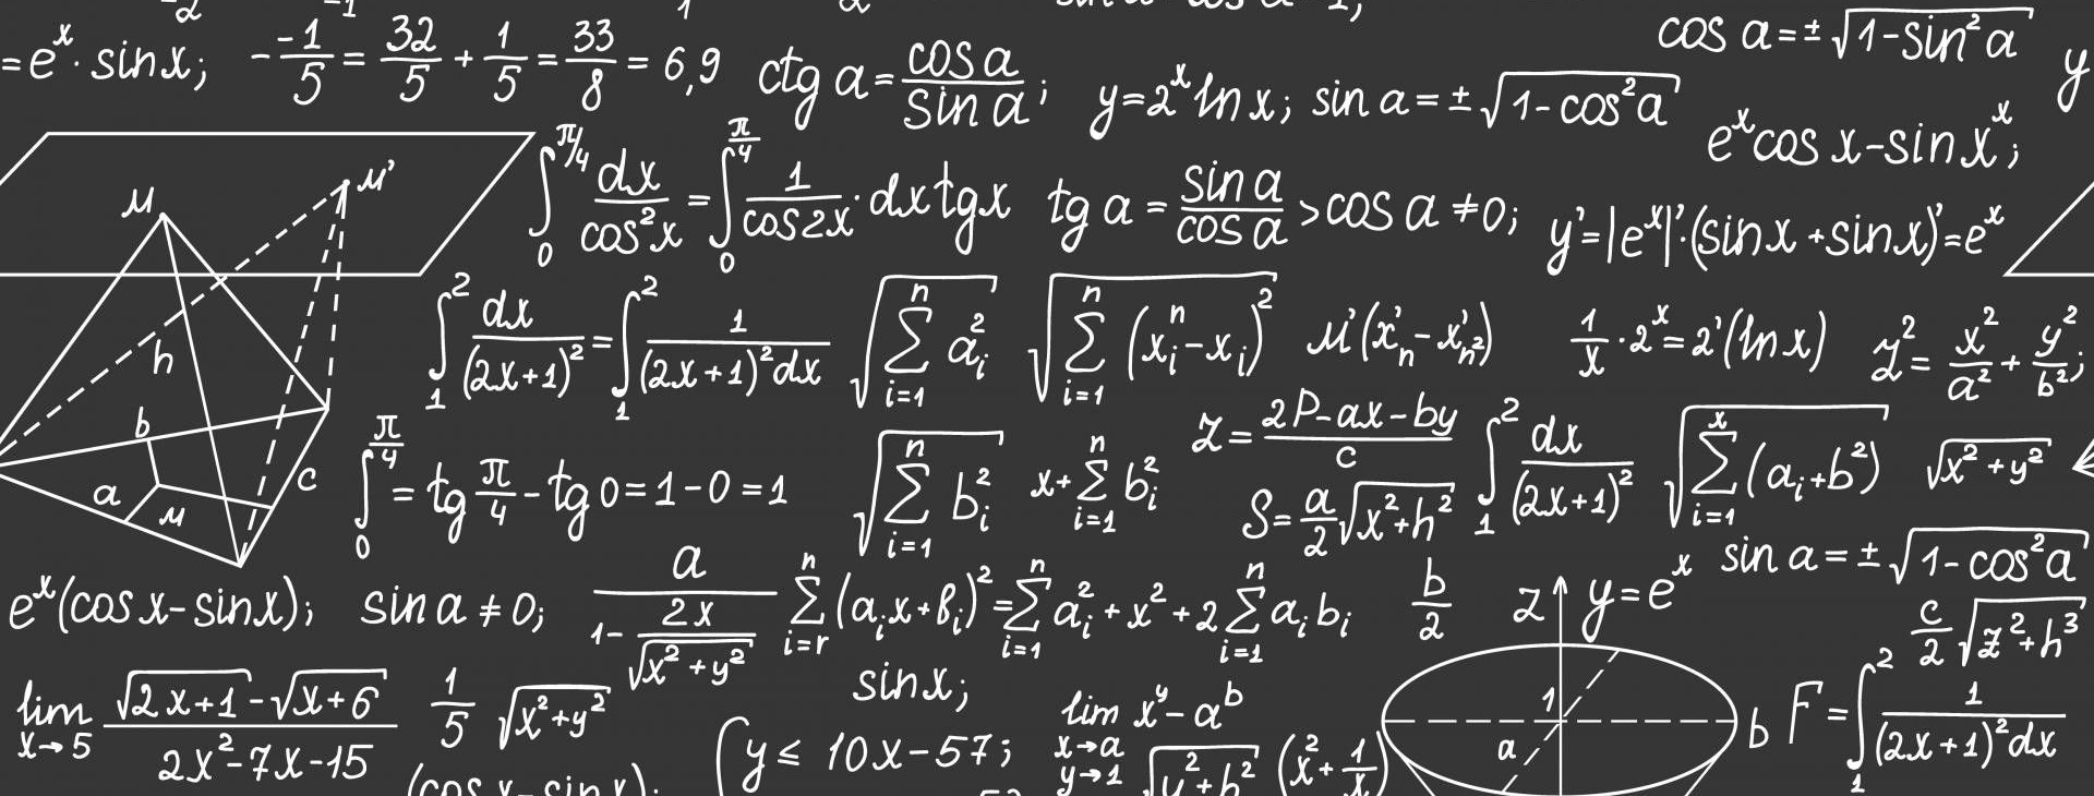 =eˣ·sinx; -⁻¹/5 = 32/5 + 1/5 = 33/8 = 6,9
ctg a = cos a / sin a;
y=2ˣ ln x; sin a = ± √(1-cos²a)
cos a = ± √(1-sin²a)
y
eˣcos x-sin xˣ;
M
M'
∫₀^(π/4) dx/cos²x = ∫₀^(π/4) 1/cos2x · dx tgx
tg a = sin a / cos a > cos a ≠ 0;
y' = |eˣ|'·(sinx + sinx)' = eˣ
h
b
a
M
c
∫₁² dx/(2x+1)² = ∫₁² 1/(2x+1)²dx
√(∑_(i=1)^n a_i²)
√(∑_(i=1)^n (x_i^n - x_i)²)
M'(x'_n - x'_(n²))
1/x · 2ˣ = 2'(ln x)
z² = x²/a² + y²/b²;
∫₀^(π/4) = tg π/4 - tg 0 = 1-0 = 1
√(∑_(i=1)^n b_i²)
x+∑_(i=1)^n b_i²
z = (2P-ax-by)/c
S = a/2 √(x²+h²)
∫₁² dx/(2x+1)²
√(∑_(i=1)^x (a_i+b²))
√(x²+y²)
eˣ(cos x-sinx); sin a ≠ 0;
a / (1 - 2x/√(x²+y²))
∑_(i=r)^n (a_i x + B_i)² = ∑_(i=1)^n a_i² + x² + 2 ∑_(i=1)^n a_i b_i
b/2
z
y=eˣ
sin a = ± √(1-cos²a)
c/2 √(z²+h³)
lim_(x→5) (√(2x+1) - √(x+6)) / (2x²-7x-15)
1/5 √(x²+y²)
sinx;
{y ≤ 10x-57;
lim_(x→a, y→1) x^y - a^b
(x² + 1/x)
1
a
b
F = ∫₁² 1/(2x+1)²dx